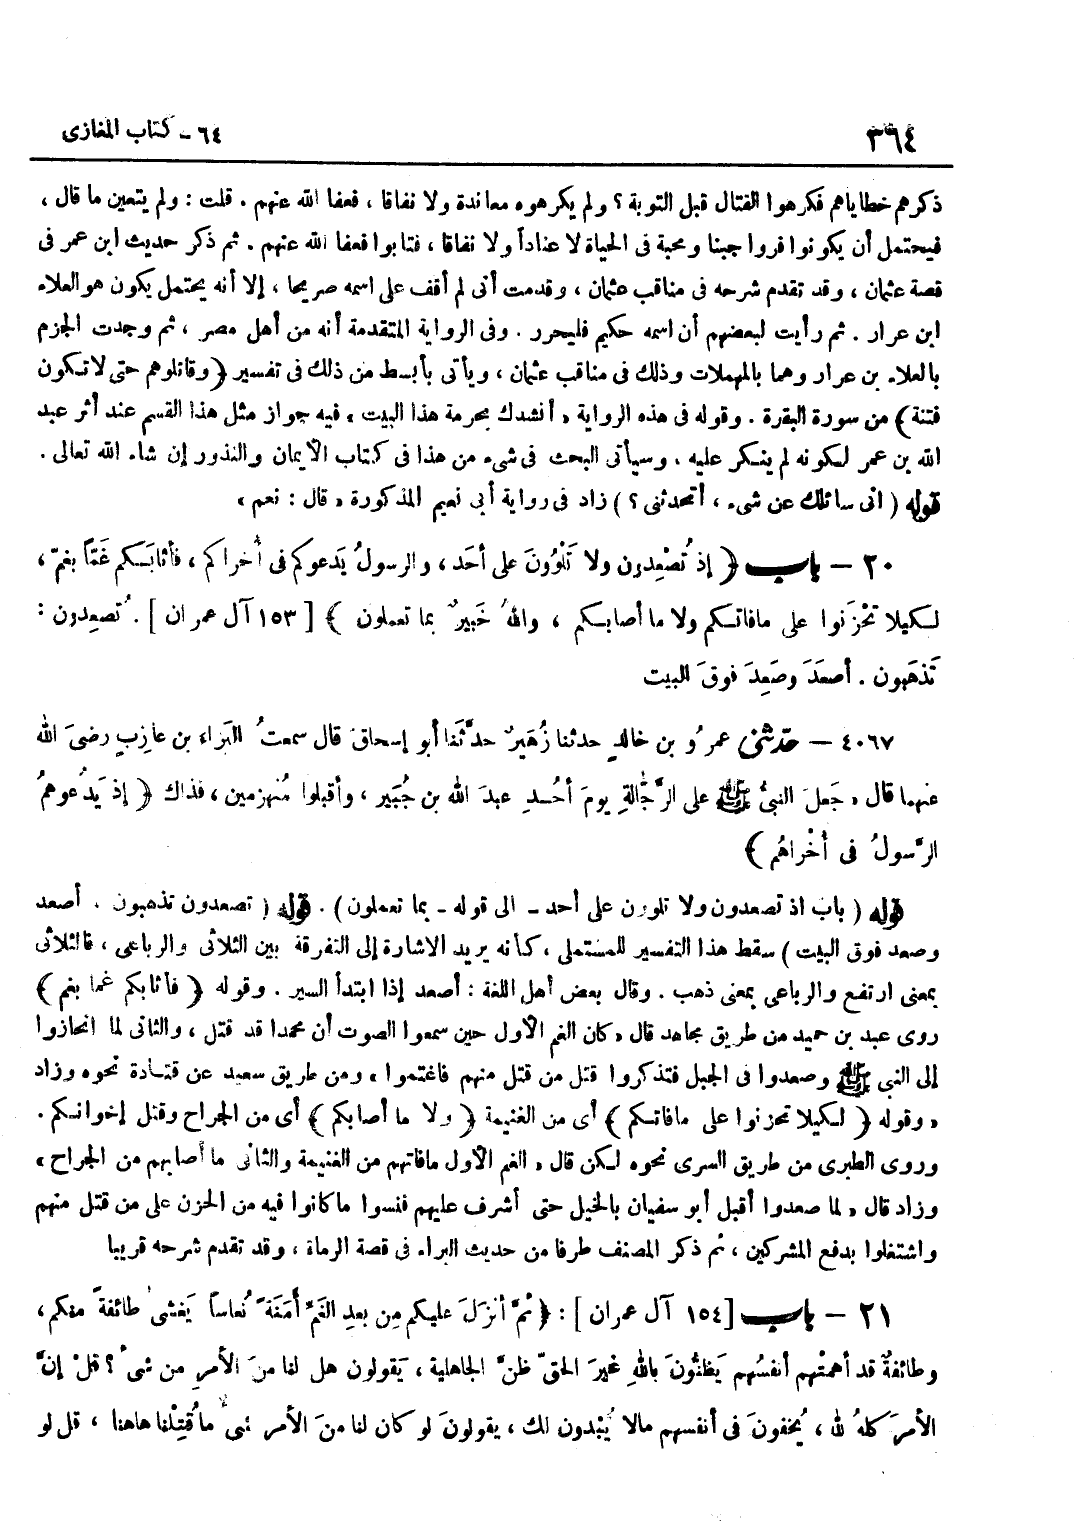 ٣٦٤
٦٤ - كتاب المغازى
ذكرهم خطاياهم فكرهوا القتال قبل التوبة ؟ ولم يكرهوه معاندة ولا نفاقا ، فعفا الله عنهم . قلت : ولم يتعين ما قال ،
فيحتمل أن يكونوا فروا جبنا ومحبة فى الحياة لا عناداً ولا نفاقا ، فتابوا فعفا الله عنهم . ثم ذكر حديث ابن عمر فى
قصة عثمان ، وقد تقدم شرحه فى مناقب عثمان ، وقدمت أنى لم أقف على اسمه صريحا ، إلا أنه يحتمل يكون هو العلاء
ابن عرار . ثم رأيت لبعضهم أن اسمه حكيم فليحرر . وفى الرواية المتقدمة أنه من أهل مصر ، ثم وجدت الجزم
بالعلاء بن عرار وهما بالمهملات وذلك فى مناقب عثمان ، ويأتى بأبسط من ذلك فى تفسير ﴿ وقاتلوهم حتى لا تكون
فتنة ﴾ من سورة البقرة . وقوله فى هذه الرواية « أنشدك بحرمة هذا البيت ، فيه جواز مثل هذا القسم عند أثر عبد
الله بن عمر لكونه لم ينكر عليه . وسيأتى البحث فى شىء من هذا فى كتاب الأيمان والنذور إن شاء الله تعالى .
قوله ( انى سائلك عن شىء ، أتحدثنى ؟ ) زاد فى رواية أبى نعيم المذكورة « قال : نعم »
٢٠ - باب ﴿ إذ تُصْعِدون ولا تَلْوُونَ على أحَد ، والرسولُ يَدعوكم فى أُخراكم ، فأثابَكم غَمّاً بغمّ ،
لكيلا تَحْزَنوا على مافاتكم ولا ما أصابكم ، واللهُ خَبيرٌ بما تعملون ﴾ [ ١٥٣ آل عمران ] . تُصعِدون :
تَذهَبون . أصعَدَ وصَعِدَ فوقَ البيت
٤٠٦٧ - حدثنى عمرُو بن خالدٍ حدثنا زُهَيرٌ حدَّثَنا أبو إسحاقَ قال سمعتُ البَراءَ بن عازبٍ رضىَ الله
عنهما قال « جَعلَ النبىُّ ﷺ على الرَّجّالةِ يومَ أُحُدٍ عبدَ الله بن جُبَير ، وأقبلوا مُنهزمين ، فذاك ﴿ إذ يَدْعوهمُ
الرَّسولُ فى أُخْراهُم ﴾
قوله ( باب اذ تصعدون ولا تلوون على أحد - الى قوله - بما تعملون ) . قوله ( تصعدون تذهبون . أصعد
وصعد فوق البيت ) سقط هذا التفسير للمستملى ، كأنه يريد الاشارة إلى التفرقة بين الثلاثى والرباعى ، فالثلاثى
بمعنى ارتفع والرباعى بمعنى ذهب . وقال بعض أهل اللغة : أصعد إذا ابتدأ السير . وقوله ﴿ فأثابكم غما بغم ﴾
روى عبد بن حميد من طريق مجاهد قال « كان الغم الأول حين سمعوا الصوت أن محمدا قد قتل ، والثانى لما انحازوا
إلى النبى ﷺ وصعدوا فى الجبل فتذكروا قتل من قتل منهم فاغتموا ، ومن طريق سعيد عن قتادة نحوه وزاد
« وقوله ﴿ لكيلا تحزنوا على مافاتكم ﴾ أى من الغنيمة ﴿ ولا ما أصابكم ﴾ أى من الجراح وقتل إخوانكم .
وروى الطبرى من طريق السرى نحوه لكن قال « الغم الأول مافاتهم من الغنيمة والثانى ما أصابهم من الجراح »
وزاد قال « لما صعدوا أقبل أبو سفيان بالخيل حتى أشرف عليهم فنسوا ما كانوا فيه من الحزن على من قتل منهم
واشتغلوا بدفع المشركين ، ثم ذكر المصنف طرفا من حديث البراء فى قصة الرماة ، وقد تقدم شرحه قريبا
٢١ - باب [ ١٥٤ آل عمران ] : ﴿ ثمَّ أنزلَ عليكم مِن بعدِ الغَمِّ أمَنَةً نُعاساً يَغشى طائفةً منكم ،
وطائفةٌ قد أهمتْهم أنفسُهم يَظنُّونَ باللهِ غيرَ الحقِّ ظنَّ الجاهلية ، يَقولون هل لنا منَ الأمرِ من شىء ؟ قلْ إنَّ
الأمرَ كلهُ لله ، يُخفونَ فى أنفسهم مالا يُبْدون لك ، يقولونَ لو كان لنا منَ الأمر شىءٌ ما قُتِلْنا هاهنا ، قل لو